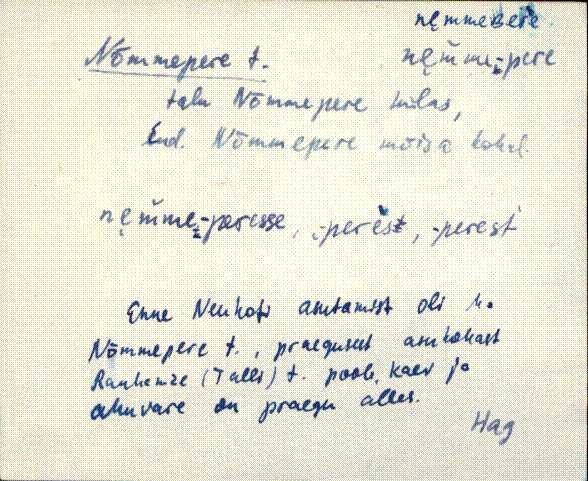 nęmmeʙere
Nõmmepere t. nęm̆me-pere
talu Nõmmepere külas,
End. Nõmmepere mõisa kohal.
nęm̆me-peresse, -perest, -perest
Enne asutamist oli
Nõmmepere t., praegusest asukohast
(Talli) t. pool, kaev ja
ahuvare on praegu alles.
Hag